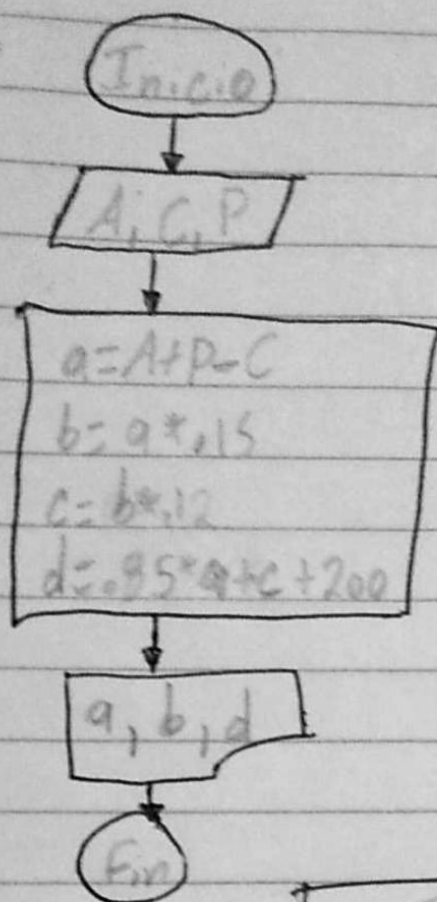 Inicio
A, C, P
a=A+P-C
b=a*.15
c=b*.12
d=.85*a+c+200
a, b, d
Fin